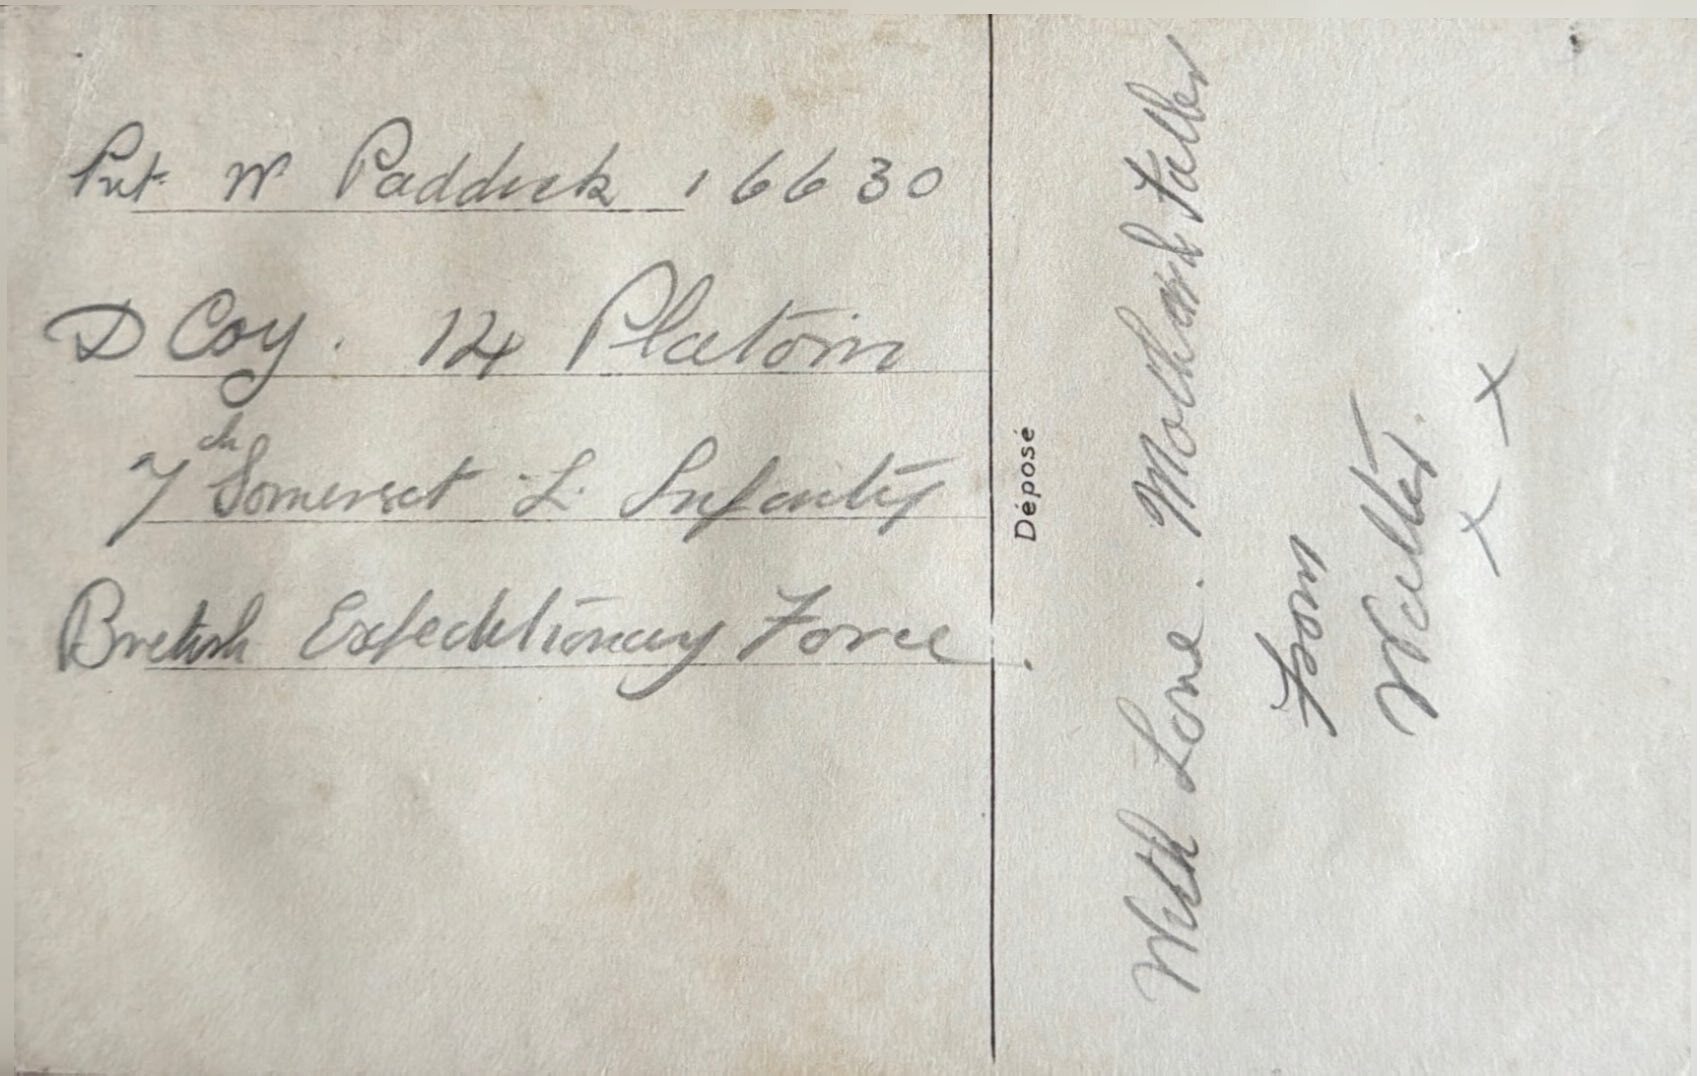 Pvt. W Paddick 16630
D Coy. 14 Platoon
7th Somerset L. Infantry
British Expeditionary Force.
Déposé
With Love. Moth and Father
from
Walter.
x x